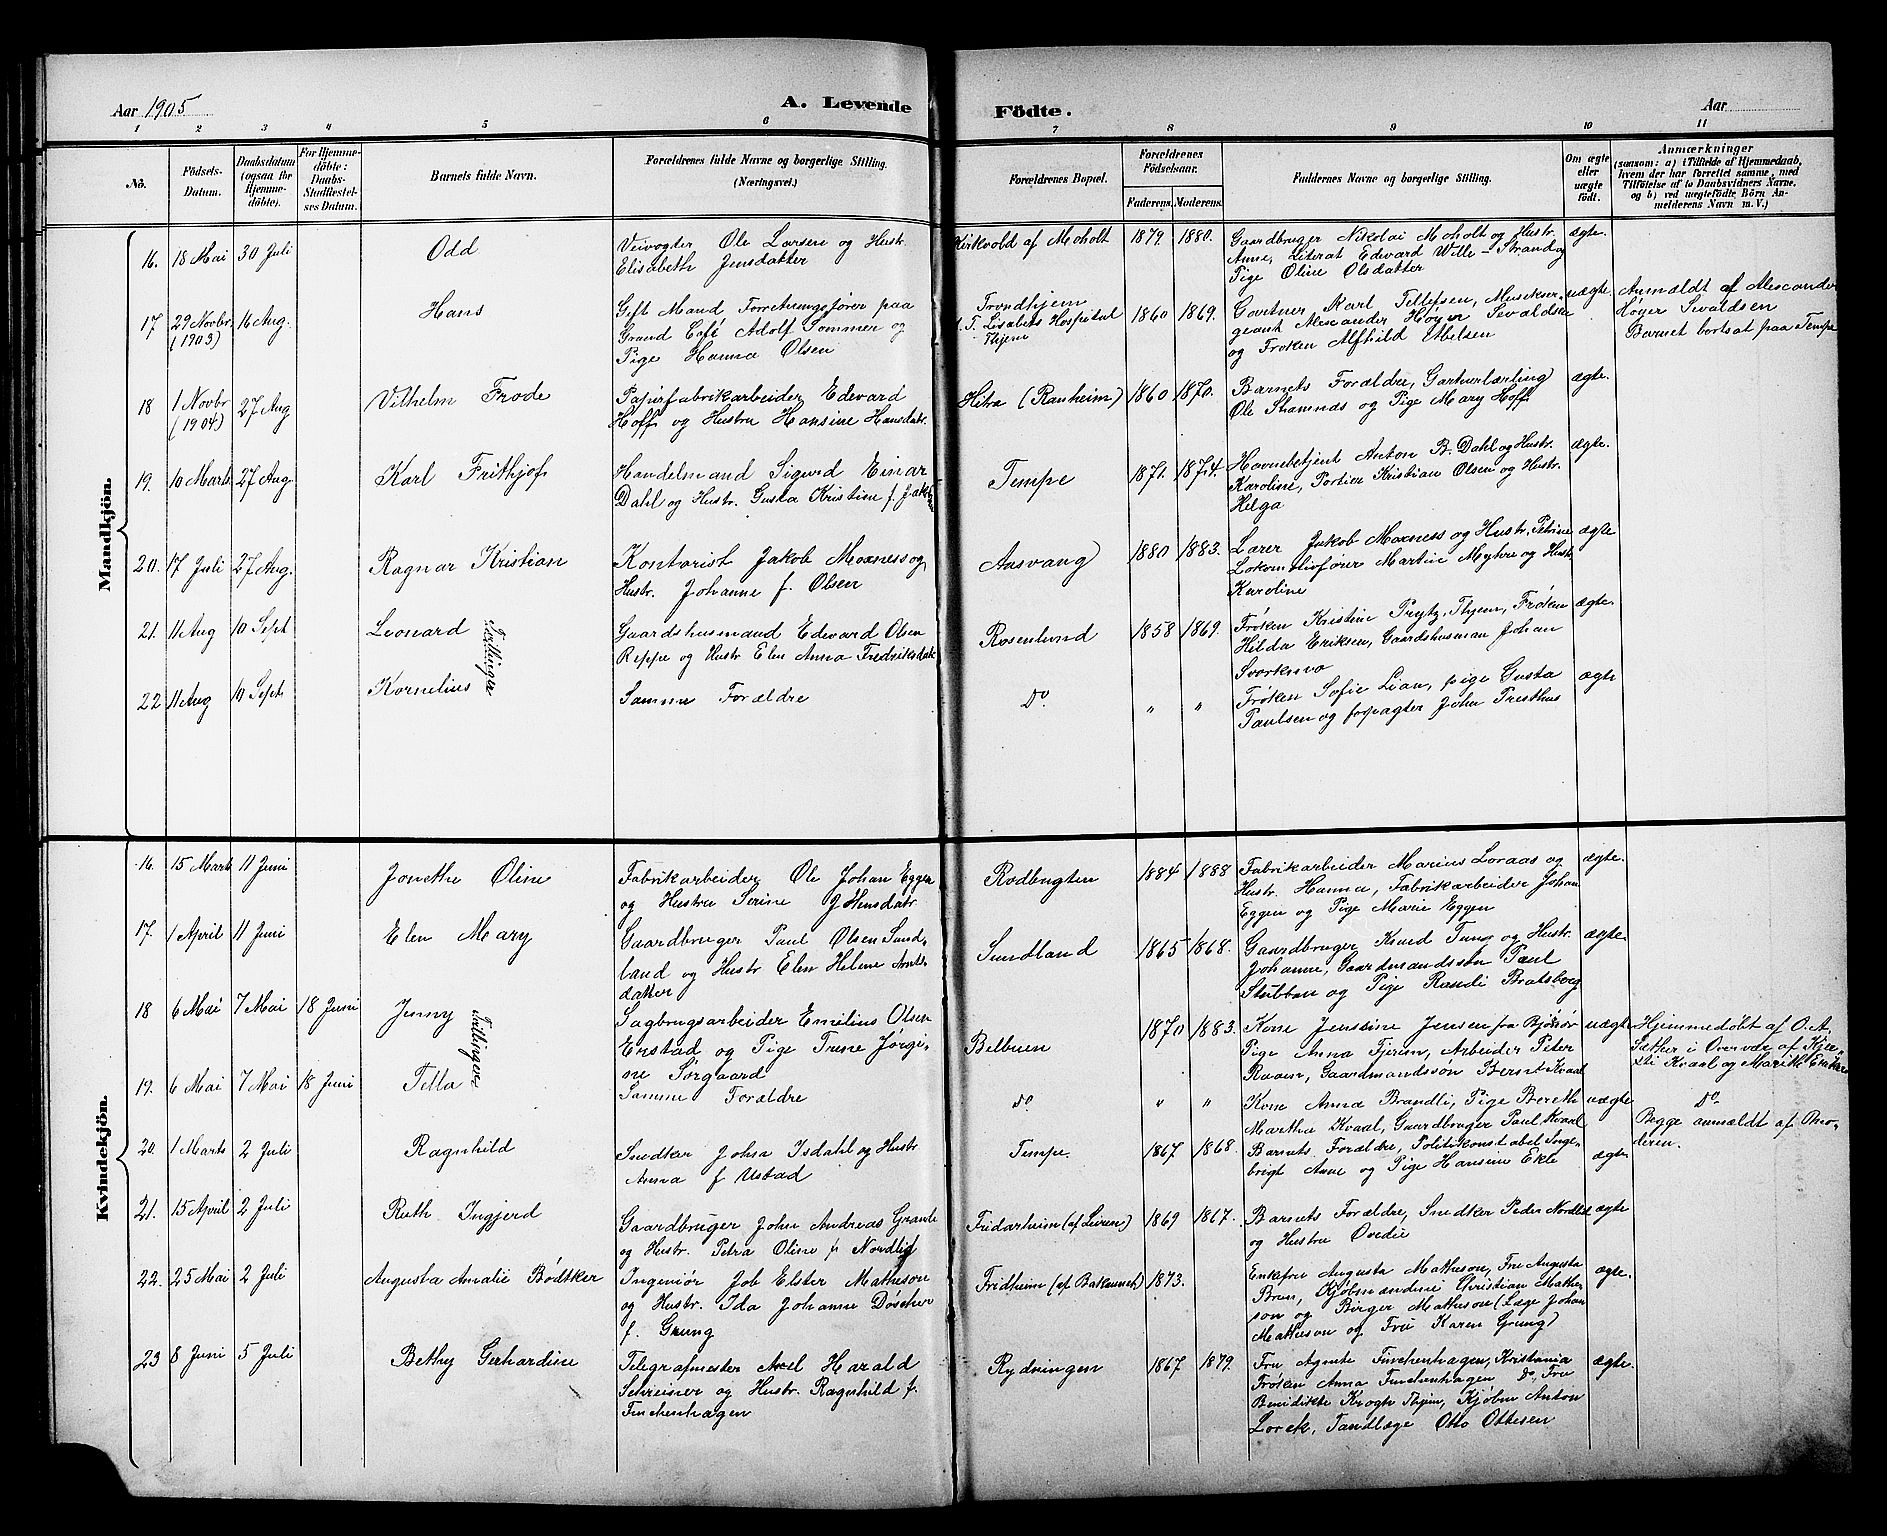 Aar 1905
A. Levende Födte.
Aar
1 2 3 4 5 6 7 8 9 10 11
No.
Födsels-
Datum.
Daabsdatum
(ogsaa for
Hjemme-
döbte).
For Hjemme-
döbte:
Daabs-
Stadfæstel-
ses Datum.
Barnets fulde Navn.
Forældrenes fulde Navne og borgerlige Stilling.
(Næringsvei.)
Forældrenes Bopæl.
Forældrenes
Födselsaar.
Faderens.
Moderens.
Faddernes Navne og borgerlige Stilling.
Om ægte
eller
uægte
födt.
Anmærkninger
(saasom: a) i Tilfælde af Hjemmedaab,
hvem der har forrettet samme, med
Tilföielse af to Daabsvidners Navne,
og b) ved uægtefödte Börn An-
melderens Navn m. V.)
Mandkjön.
16. 18 Mai 30 Juli
Odd
Veivogter Ole Larsen og Hustr.
Elisabeth Jensdatter
Kirkvold af Moholt
1879 1880.
Gaardbruger Nikolai Moholt og Hustr.
Anne, Literat Edvard Wille-Strand og
Pige Oline Olsdatter
ægte.
17 29 Novbr. (1903) 16 Aug.
Hans
Gift Mand Forretningsfører paa
Grand Café Adolf Sommer og
Pige Hanna Olsen
Trondhjem
(T. Lisabets Hospital
Thjem
1860 1869.
Gartner Karl Tellefsen, Musikser-
geant Alexander Høyer Sevaldsen
og Frøken Alfhild Ebelsen
uægte.
Anmældt af Alexander
Høyer Sevaldsen
Barnet bortsat paa Tempe
18 1 Novbr (1904) 27 Aug
Vilhelm Frode
Papirfabrikarbeider Edevard
Hoff og Hustru Hansine Hansdatr.
Hitra (Ranheim)
1860 1870.
Barnets Forældre, Garverlærling
Ole Stamnæs og Pige Mary Hoff
ægte.
19. 10 Marts 27 Aug.
Karl Frithjof
Handelsmand Sigurd Einar
Dahl og Hustr. Gusta Kristine f. Jakobsen
Tempe
1871. 1874.
Havnebetjent Anton B. Dahl og Hustr.
Karoline, Portier Kristian Olsen og Hustr.
Helga
ægte.
20. 17 Juli 27 Aug.
Ragnar Kristian
Kontorist Jakob Moxness og
Hustr. Johanne f. Olsen
Aasvang
1880 1883.
Lærer Jakob Moxness og Hustr. Petrine
Lokomotivfører Martin Myhre og Hustr.
Karoline
ægte
21. 11 Aug 10 Sept
Leonard
Tvillinger
Gaardshusmand Edevard Olsen
Reppe og Hustr Elen Anna Fredriksdatr
Rosenlund
1858 1869.
Frøken Kristine Prytz, Thjem, Frøken
Hilda Eriksen, Gaardshusman Johan
Svorkmo
ægte.
22 11 Aug 10 Sept
Kornelius
Samme Forældre
Do
" "
Frøken Sofie Lian, pige Gusta
Paulsen og forpagter John Presthus
ægte
Kvindekjön.
16. 15 Marts 11 Juni
Jonetha Oline
Fabrikarbeider Ole Johan Eggen
og Hustru Serine J. Hensdatr.
Rodbugten
1884 1888
Fabrikarbeider Marius Loraas og
Hustr. Hanna, Fabrikarbeider Johan
Eggen og Pige Marie Eggen
ægte.
17. 1 April 11 Juni
Elen Mary
Gaardbruger Paul Olsen Sund-
land og Hustr Elen Helene Arnts-
datter
Sundland
1865 1868.
Gaardbruger Knud Tung og Hustr.
Johanne, Gaardmandssøn Paul
Stubban og Pige Randi Bratsberg
ægte.
18 6 Mai 7 Mai 18 Juni
Jenny
Tvillinger
Sagbrugsarbeider Emilius Olsen
Erstad og Pige Trine Jørgi-
ne Sorgaard
Belbuen
1870 1883.
Kone Jensine Jensen fra Bjøhør
Pige Anna Fjerem, Arbeider Peter
Raaen, Gaardmandssøn Bernt Kvaal
uægte
Hjemmedøbt af O. A.
Sæther i Overvær af Kjer-
sti Kvaal og Marith
19. 6 Mai 7 Mai 18 Juni
Tella
Samme Forældre
do.
" "
Kone Anna Brandli, Pige Bereth
Martha Kvaal, Gaardbruger Paul Kvaal
uægte
Do
Begge anmældt af Mo-
deren.
20. 1 Marts 2 Juli
Ragnhild
Snedker Johan Isdahl og Hustr
Anna f Ustad
Tempe.
1867 1868.
Barnets Forældre, Politikonstabel Inge-
brigt Aune og Pige Hansine Ekle
ægte
21. 15 April 2 Juli
Ruth Ingjerd
Gaardbruger John Andreas Granli
og Hustr. Petra Oline f. Nordlid
Fridarheim (af Leiren)
1869 1867.
Barnets Forældre, Snedker Peder Nordlid
og Hustru Ovedie
ægte
22. 25 Mai 2 Juli
Augusta Amalie Bödtker
Ingeniör Job Elster Matheson
og Hustr. Ida Johanne Döscher
f. Grung
Fridheim (af Bakaunet)
1873.
Enkefru Augusta Matheson, Fru Augusta
Brun, Kjöbmændene Christian Mathe-
son og Birger Matheson (Læge Johan
Matheson og Fru Karen Grung)
ægte.
23 8 Juni 5 Juli
Bethy Gerhardine
Telegrafmester Axel Harald
Schreiner og Hustr. Ragnhild f.
Finckenhagen
Rydningen
1867 1879.
Fru Agnete Finckenhagen, Kristiania
Frøken Anna Finckenhagen do, Fru
Benedikte Krogh Thjem, Kjöbm Anton
Lorck, Tandlæge Otto Ottesen
ægte.